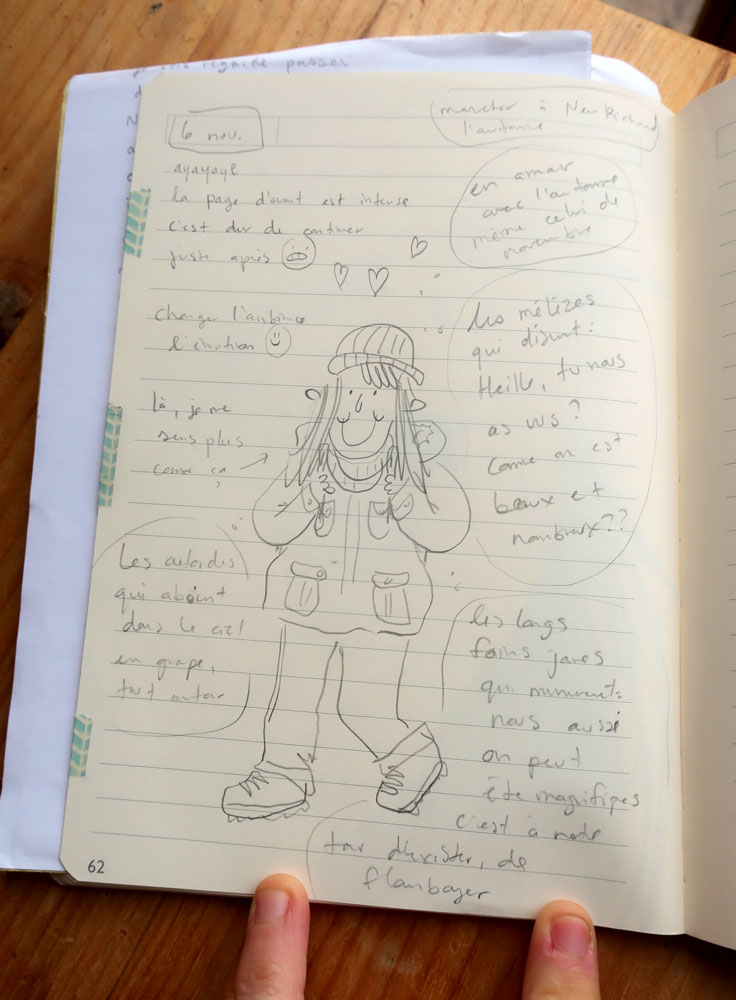 regarde passer
6 nov.
marcher à New Richmond
l'automne
ayayaye
la page d'avant est intense
c'est dur de continuer
juste après
en amour
avec l'automne
même celui de
novembre
changer l'ambiance
là, je me
sens plus
comme ça
les mélèzes
qui disent :
Heille, tu nous
as vus ?
Comme on est
beaux et
nombreux??
Les outardes
qui aboient
dans le ciel
en grappe,
tout autour
les longs
foins jaunes
qui murmurent:
nous aussi
on peut
être magnifiques
c'est à notre
tour d'exister, de
flamboyer
62